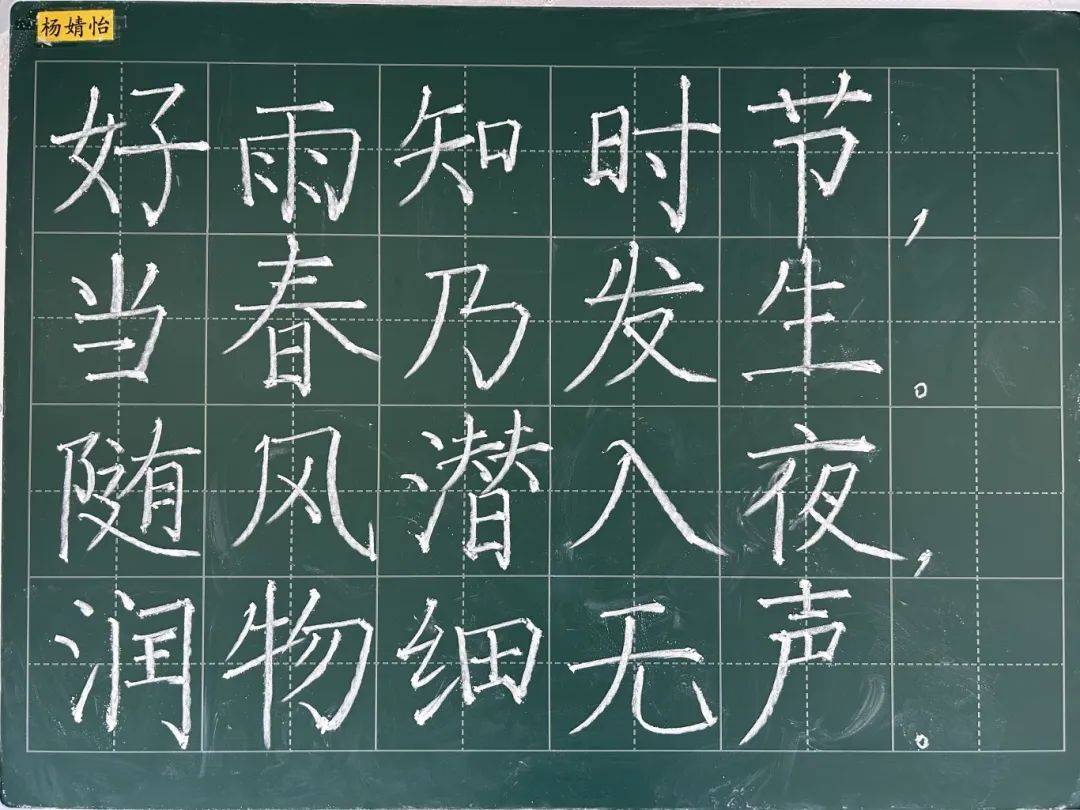 杨婧怡
好雨知时节，
当春乃发生。
随风潜入夜，
润物细无声。